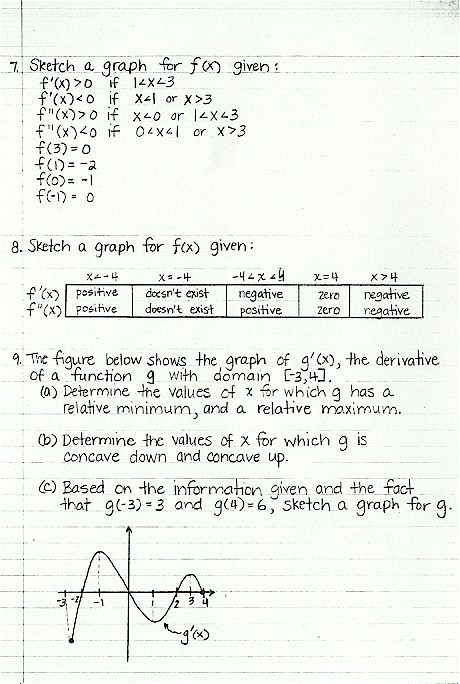 7. Sketch a graph for f(x) given:
f'(x)>0 if 1<x<3
f'(x)<0 if x<1 or x>3
f"(x)>0 if x<0 or 1<x<3
f"(x)<0 if 0<x<1 or x>3
f(3)=0
f(1)=-2
f(0)=-1
f(-1)=0
8. Sketch a graph for f(x) given:
x<-4 x=-4 -4<x<4 x=4 x>4
f'(x) positive doesn't exist negative zero negative
f"(x) positive doesn't exist positive zero negative
9. The figure below shows the graph of g'(x), the derivative
of a function g with domain [-3,4].
(a) Determine the values of x for which g has a
relative minimum, and a relative maximum.
(b) Determine the values of x for which g is
concave down and concave up.
(c) Based on the information given and the fact
that g(-3)=3 and g(4)=6, sketch a graph for g.
-3 -2 -1 1 2 3 4
g'(x)